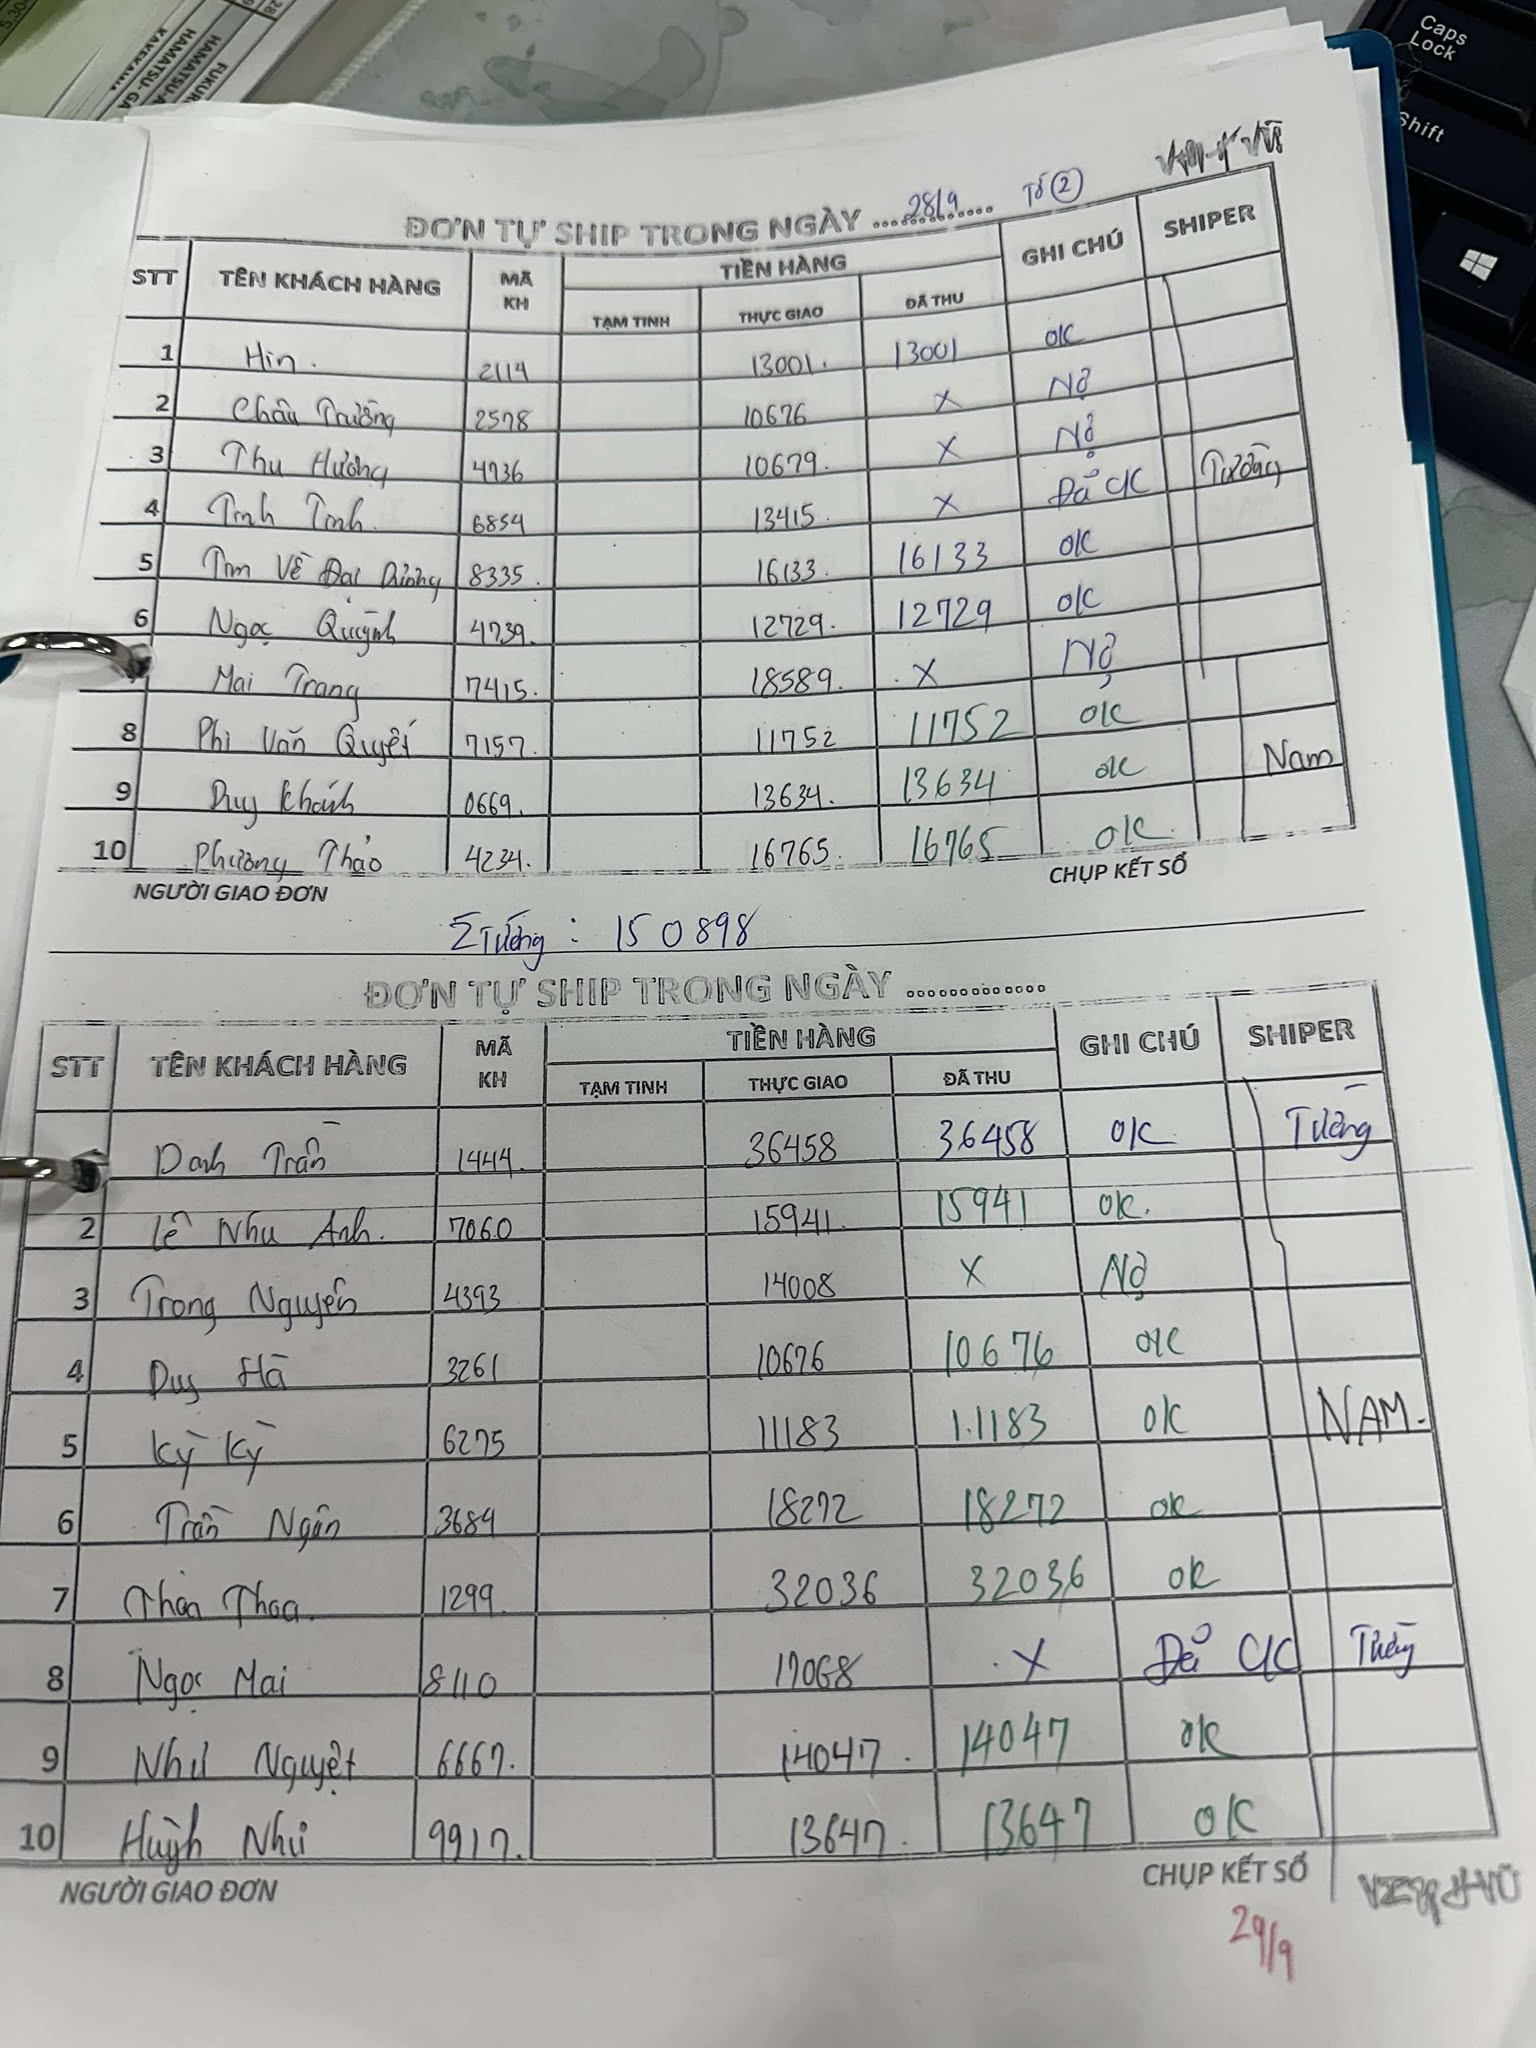 Caps Lock
Shift
ĐƠN TỰ SHIP TRONG NGÀY ....28/9.... Tờ ②
STT TÊN KHÁCH HÀNG MÃ KH TIỀN HÀNG GHI CHÚ SHIPER
TẠM TINH THỰC GIAO ĐÃ THU
1 Hin. 2114 13001. 13001 OK
2 Châu Trường 2578 10676 X Nợ
3 Thu Hương 4736 10679. X Nợ
4 Tinh Tinh. 6854 13415. X Đã CK Tường
5 Tìm Về Đại Dương 8335. 16133. 16133 OK
6 Ngọc Quỳnh 4739. 12729. 12729 OK
Mai Trang 7415. 18589. X Nợ
8 Phi Văn Quyết 7157. 11752 11752 OK
9 Duy Khánh 0669. 13634. 13634 OK Nam
10 Phương Thảo 4234. 16765. 16765 OK
NGƯỜI GIAO ĐƠN CHỤP KẾT SỔ
Σ Tường : 150898
ĐƠN TỰ SHIP TRONG NGÀY ..............
STT TÊN KHÁCH HÀNG MÃ KH TIỀN HÀNG GHI CHÚ SHIPER
TẠM TINH THỰC GIAO ĐÃ THU
Danh Trần 1444. 36458 36458 OK Tường
2 Lê Như Anh. 7060 15941. 15941 OK.
3 Trong Nguyễn 4393 14008 X Nợ
4 Duy Hà 3261 10676 10676 OK
5 Kỳ Kỳ 6275 11183 1.1183 OK NAM.
6 Trần Ngân 3684 18272 18272 OK
7 Thoa Thoa. 1299. 32036 32036 OK
8 Ngọc Mai 8110 17068 X Đã CK Tường
9 Như Nguyệt 6667. 14047. 14047 OK
10 Huỳnh Như 9917. 13647. 13647 OK
NGƯỜI GIAO ĐƠN CHỤP KẾT SỔ
29/9